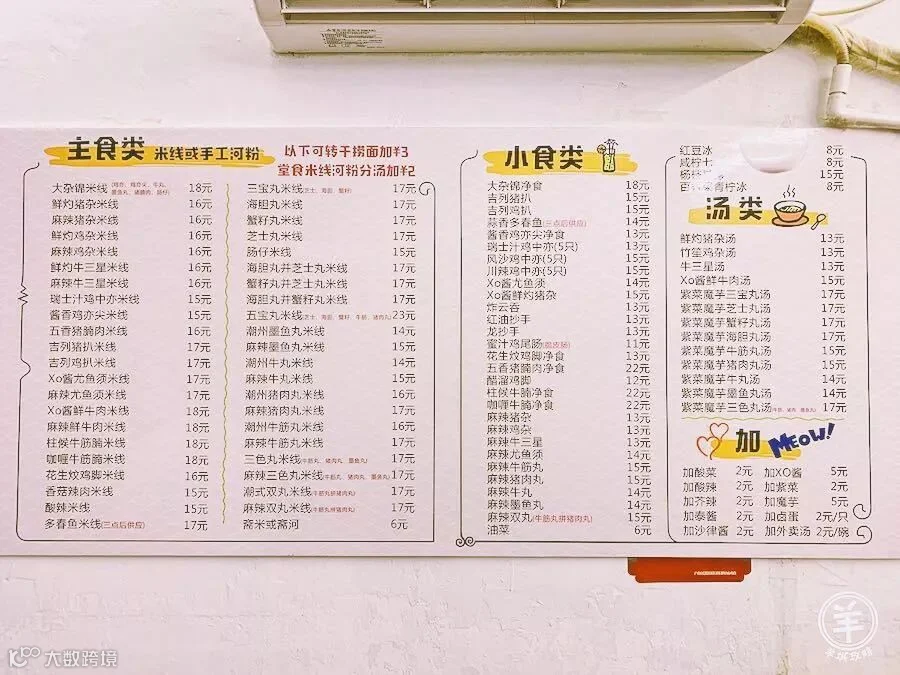 主食类 米线或手工河粉
以下可转干捞面加¥3
堂食米线河粉分汤加¥2
大杂锦米线 18元
鲜灼猪杂米线 16元
麻辣猪杂米线 16元
鲜灼鸡杂米线 16元
麻辣鸡杂米线 16元
鲜灼牛三星米线 16元
麻辣牛三星米线 16元
瑞士汁鸡中亦米线 15元
酱香鸡亦尖米线 15元
五香猪腩肉米线 16元
吉列猪扒米线 17元
吉列鸡扒米线 17元
Xo酱尤鱼须米线 17元
麻辣尤鱼须米线 17元
Xo酱鲜牛肉米线 18元
麻辣鲜牛肉米线 18元
柱候牛筋腩米线 18元
咖喱牛筋腩米线 18元
花生炆鸡脚米线 16元
香菇辣肉米线 15元
酸辣米线 15元
多春鱼米线(三点后供应) 17元
三宝丸米线(芝士、海胆、蟹籽) 17元
海胆丸米线 17元
蟹籽丸米线 17元
芝士丸米线 17元
肠仔米线 15元
海胆丸并芝士丸米线 17元
蟹籽丸并芝士丸米线 17元
海胆丸并蟹籽丸米线 17元
五宝丸米线(芝士、海胆、蟹籽、牛筋、猪肉丸) 23元
潮州墨鱼丸米线 14元
麻辣墨鱼丸米线 15元
潮州牛丸米线 14元
麻辣牛丸米线 15元
潮州猪肉丸米线 16元
麻辣猪肉丸米线 17元
潮州牛筋丸米线 16元
麻辣牛筋丸米线 17元
三色丸米线(牛筋丸、猪肉丸、墨鱼丸) 17元
麻辣三色丸米线(牛筋丸、猪肉丸、墨鱼丸) 17元
潮式双丸米线(牛筋丸拼猪肉丸) 17元
麻辣双丸米线(牛筋丸拼猪肉丸) 17元
斋米或斋河 6元
小食类
大杂锦净食 18元
吉列猪扒 15元
吉列鸡扒 15元
蒜香多春鱼(三点后供应) 14元
酱香鸡亦尖净食 13元
瑞士汁鸡中亦(5只) 13元
风沙鸡中亦(5只) 15元
川辣鸡中亦(5只) 15元
Xo酱尤鱼须 14元
Xo酱鲜灼猪杂 15元
炸云吞 13元
红油抄手 13元
龙抄手 13元
蜜汁鸡尾肠(脆皮肠) 11元
花生炆鸡脚净食 13元
五香猪腩肉净食 22元
醋溜鸡脚 12元
柱候牛腩净食 22元
咖喱牛腩净食 22元
麻辣猪杂 13元
麻辣鸡杂 13元
麻辣牛三星 13元
麻辣尤鱼须 14元
麻辣牛筋丸 15元
麻辣猪肉丸 15元
麻辣牛丸 14元
麻辣墨鱼丸 14元
麻辣双丸(牛筋丸拼猪肉丸) 15元
油菜 6元
红豆冰 8元
咸柠七 8元
15元
柠冰 8元
汤类
鲜灼猪杂汤 13元
竹笙鸡杂汤 13元
牛三星汤 13元
Xo酱鲜牛肉汤 15元
紫菜魔芋三宝丸汤 17元
紫菜魔芋芝士丸汤 17元
紫菜魔芋蟹籽丸汤 17元
紫菜魔芋海胆丸汤 17元
紫菜魔芋牛筋丸汤 15元
紫菜魔芋猪肉丸汤 15元
紫菜魔芋牛丸汤 14元
紫菜魔芋墨鱼丸汤 14元
紫菜魔芋三色丸汤(牛筋、猪肉、墨鱼丸) 17元
加 MEOW!
加酸菜 2元 加XO酱 5元
加酸辣 2元 加紫菜 2元
加芥辣 2元 加魔芋 5元
加泰酱 2元 加卤蛋 2元/只
加沙律酱 2元 加外卖汤 2元/碗
羊
羊城攻略
大数跨境